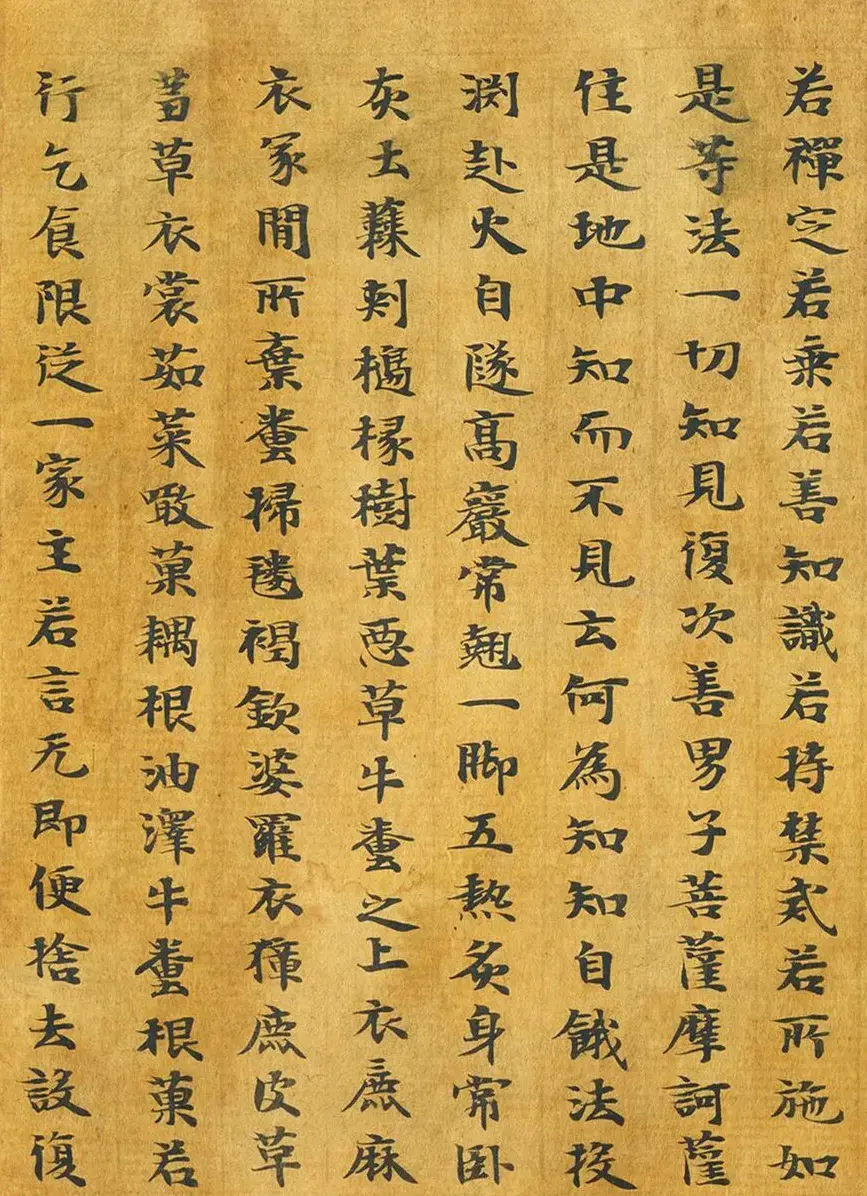 若禪定若乘若善知識若持禁戒若所施如
是等法一切知見復次善男子菩薩摩訶薩
住是地中知而不見云何為知知自餓法投
渕赴火自墜高巖常翹一脚五熱炙身常臥
灰土蕀刾樢椽樹葉惡草牛糞之上衣麁麻
衣冢間所棄糞掃氀褐欽婆羅衣獐鹿皮草
蒭草衣裳茹菜噉菓耦根油滓牛糞根菓若
行乞食限從一家主若言无即便捨去設復